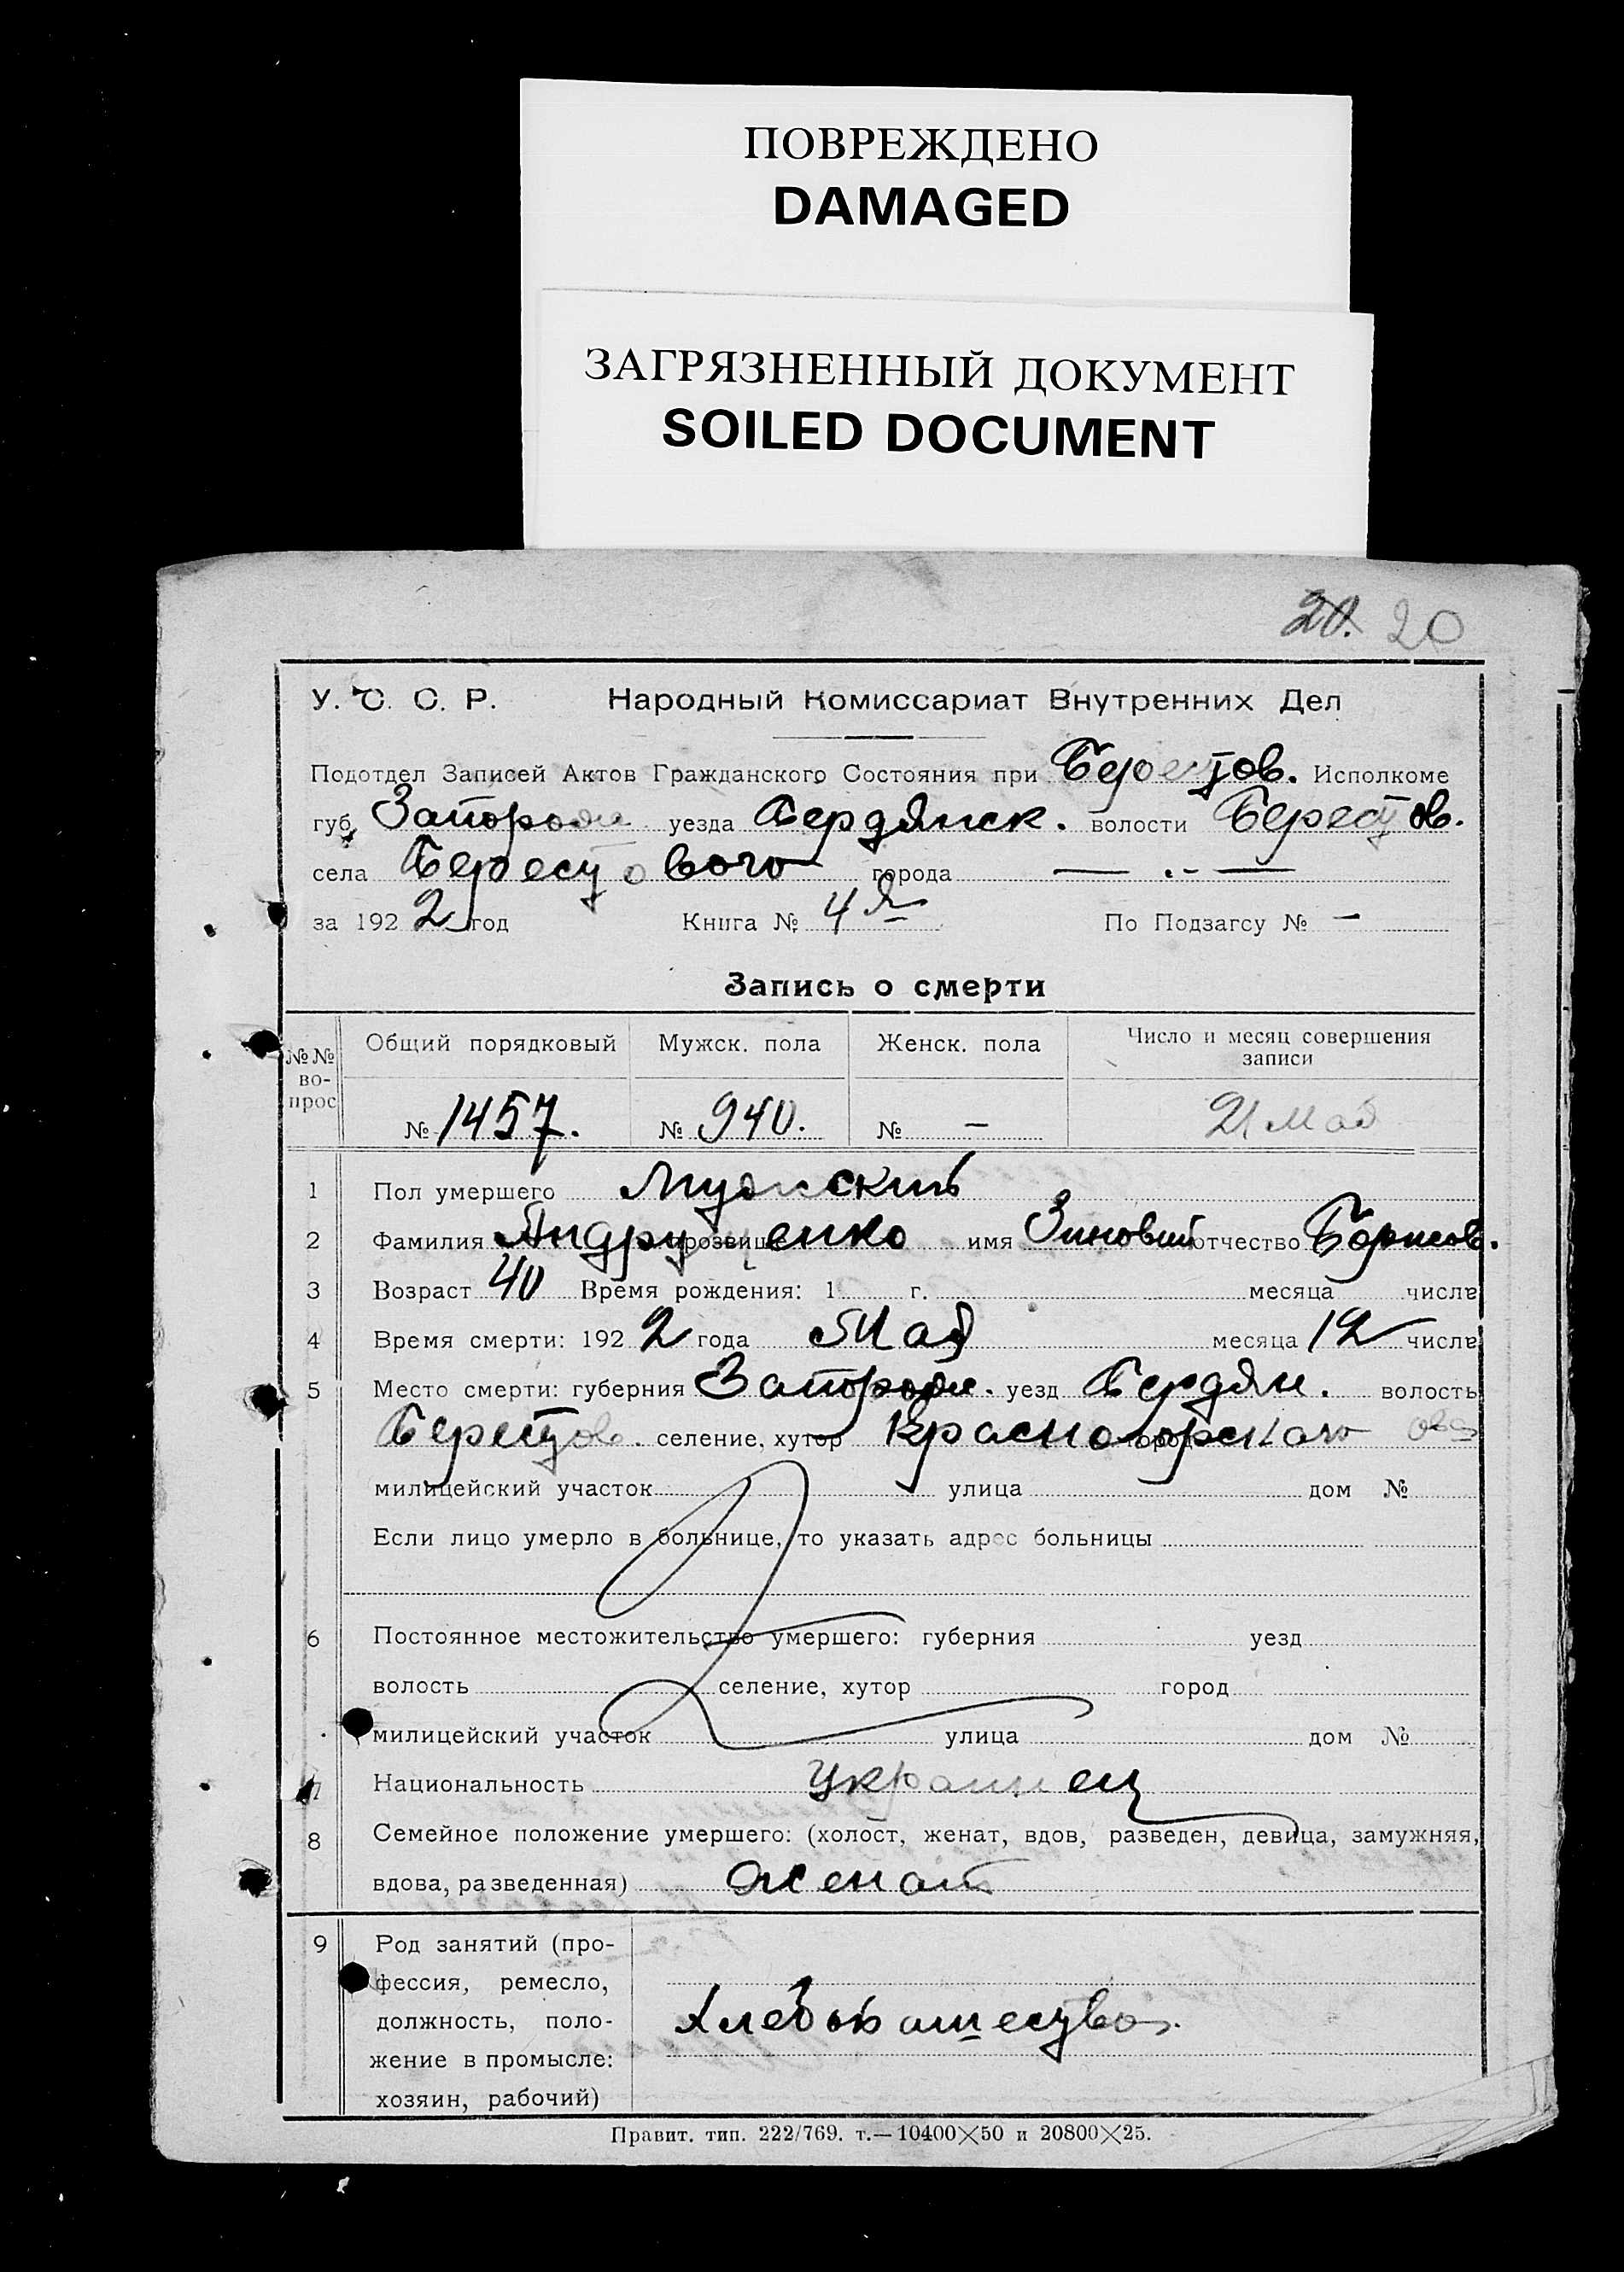 ПОВРЕЖДЕНО
DAMAGED
ЗАГРЯЗНЕННЫЙ ДОКУМЕНТ
SOILED DOCUMENT
20. 20
У. С. С. Р. Народный Комиссариат Внутренних Дел
Подотдел Записей Актов Гражданского Состояния при Берестов. Исполкоме
губ. Запорож. уезда Бердянск. волости Берестов.
села Берестового города — „ —
за 1922 год Книга № 4я По Подзагсу № —
Запись о смерти
№№ вопрос Общий порядковый Мужск. пола Женск. пола Число и месяц совершения
записи
№ 1457. № 940. № — 21 Мая
1 Пол умершего Мужскый
2 Фамилия прозвище Андрущенко имя Зиновий отчество Борисов.
3 Возраст 40 Время рождения: 1 г. месяца числа
4 Время смерти: 1922 года Мая месяца 12 числа
5 Место смерти: губерния Запорож. уезд Бердян. волость
Берестов. селение, хутор город Красногорского
милицейский участок улица дом №
Если лицо умерло в больнице, то указать адрес больницы
6 Постоянное местожительство умершего: губерния уезд
волость селение, хутор город
милицейский участок улица дом №
7 Национальность Украинец
8 Семейное положение умершего: (холост, женат, вдов, разведен, девица, замужняя,
вдова, разведенная) женат
9 Род занятий (про-
фессия, ремесло,
должность, поло- Хлебопашество.
жение в промысле:
хозяин, рабочий)
Правит. тип. 222/769. т.—10400×50 и 20800×25.